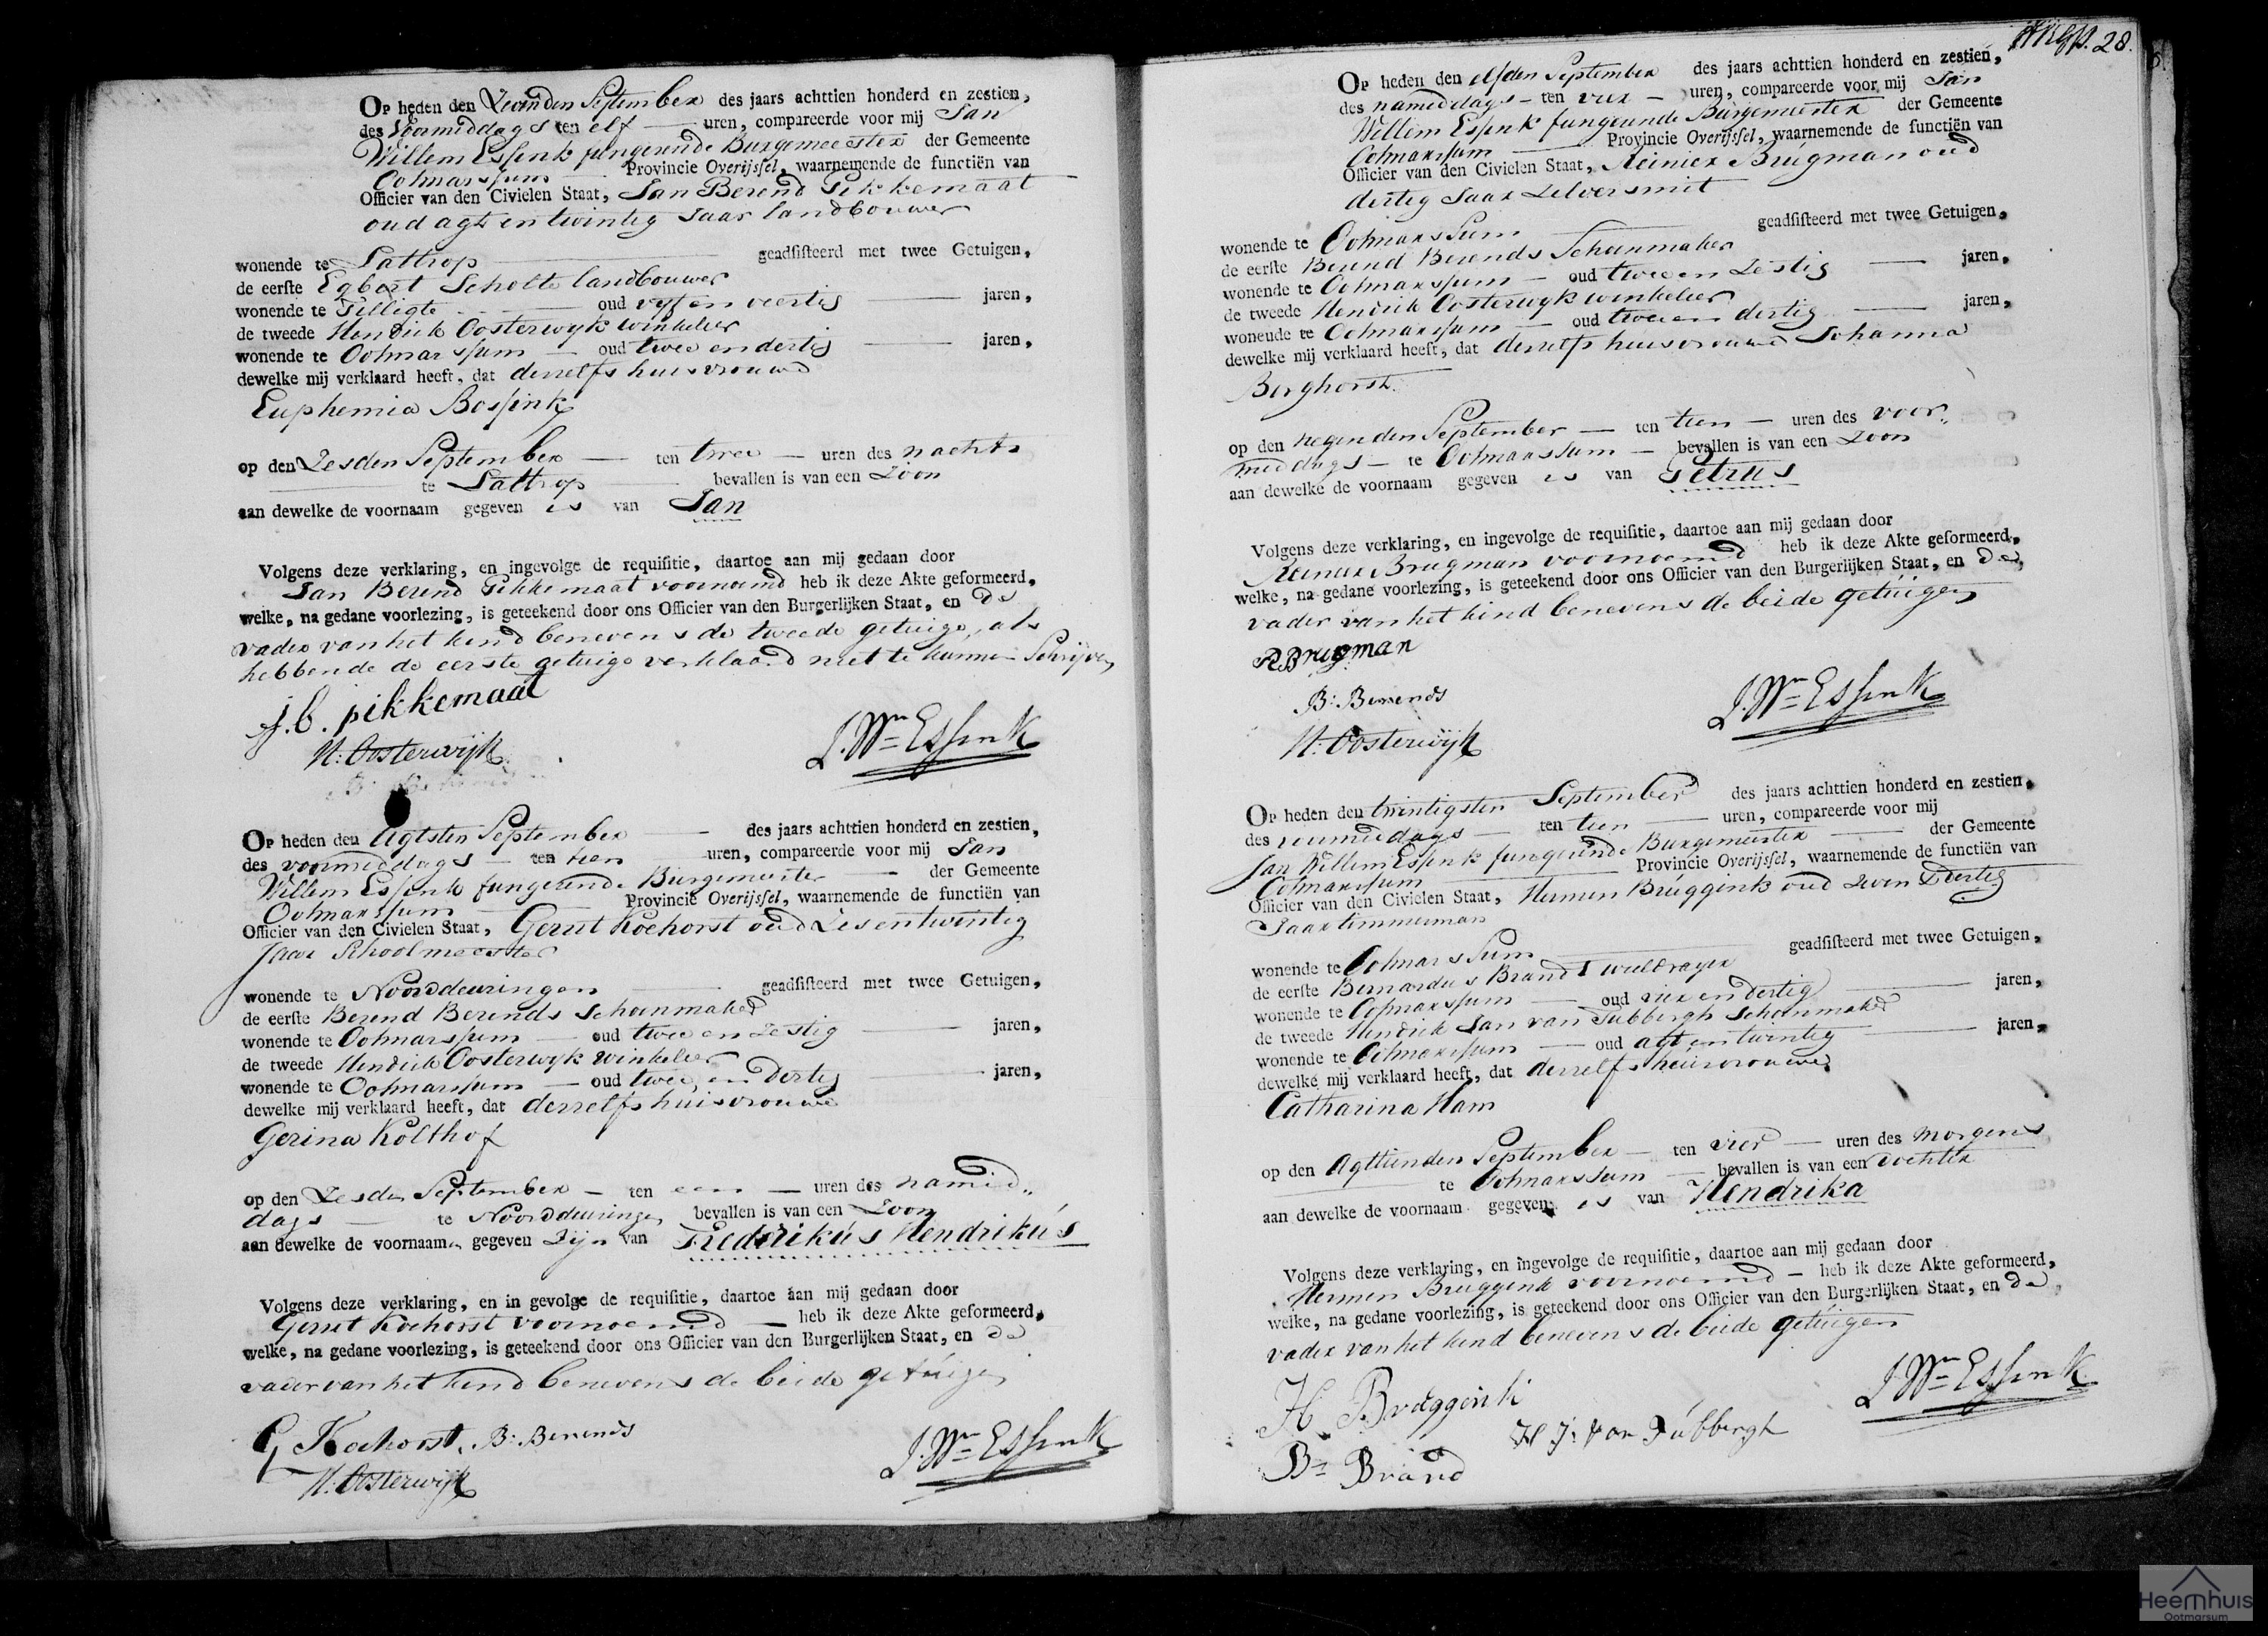 Op heden den Zevenden September des jaars achttien honderd en zestien,
des Voormiddags ten elf uren, compareerde voor mij Jan
Willem Essink fungerende Burgemeester der Gemeente
Ootmarssum Provincie Overijssel, waarnemende de functiën van
Officier van den Civielen Staat, Jan Berend Pikkemaat
oud agt en twintig Jaar landbouwer
wonende te Lattrop geadsisteerd met twee Getuigen,
de eerste Egbert Scholte landbouwer
wonende te Tilligte oud vyf en veertig jaren,
de tweede Hendrik Oosterwyk winkelier
wonende te Ootmarssum oud twee en dertig jaren,
dewelke mij verklaard heeft, dat deszelfs huisvrouwe
Euphemia Bossink
op den Zesden September ten twee uren des nachts
te Lattrop bevallen is van een Zoon
aan dewelke de voornaam gegeven is van Jan
Volgens deze verklaring, en ingevolge de requisitie, daartoe aan mij gedaan door
Jan Berend Pikkemaat voornoemd heb ik deze Akte geformeerd,
welke, na gedane voorlezing, is geteekend door ons Officier van den Burgerlijken Staat, en de
vader van het kind benevens de tweede getuige, als
hebbende de eerste getuige verklaard niet te kunnen Schrijven
j. b. pikkemaat
H: Oosterwijk
J. Wm Essink
Op heden den Agtsten September des jaars achttien honderd en zestien,
des voormiddags ten tien uren, compareerde voor mij Jan
Willem Essink fungerende Burgemeester der Gemeente
Ootmarssum Provincie Overijssel, waarnemende de functiën van
Officier van den Civielen Staat, Gerrit Kochorst oud Zes en twintig
Jaar Schoolmeester
wonende te Noorddeuringen geadsisteerd met twee Getuigen,
de eerste Berend Berends Schoenmaker
wonende te Ootmarssum oud twee en Zestig jaren,
de tweede Hendrik Oosterwyk winkelier
wonende te Ootmarssum oud twee en dertig jaren,
dewelke mij verklaard heeft, dat deszelfs huisvrouwe
Gerina Kolthof
op den Zesden September ten een uren des namid„
dags te Noorddeuringen bevallen is van een Zoon
aan dewelke de voornaamen gegeven Zijn van Frederikus Hendrikus
Volgens deze verklaring, en in gevolge de requisitie, daartoe aan mij gedaan door
Gerrit Kochorst voornoemd heb ik deze Akte geformeerd,
welke, na gedane voorlezing, is geteekend door ons Officier van den Burgerlijken Staat, en de
vader van het kind benevens de beide getuigen
G Kochorst, B: Berends
H: Oosterwijk
J. Wm Essink
28.
Op heden den elfden September des jaars achttien honderd en zestien,
des namiddags ten vier uren, compareerde voor mij Jan
Willem Essink fungerende Burgemeester der Gemeente
Ootmarssum Provincie Overijssel, waarnemende de functiën van
Officier van den Civielen Staat, Reinier Brugman oud
dertig Jaar Zelversmit
wonende te Ootmarssum geadsisteerd met twee Getuigen,
de eerste Berend Berends Schoenmaker
wonende te Ootmarssum oud twee en Zestig jaren,
de tweede Hendrik Oosterwyk winkelier
wonende te Ootmarssum oud twee en dertig jaren,
dewelke mij verklaard heeft, dat deszelfs huisvrouwe Johanna
Borghorst
op den negenden September ten tien uren des voor„
middags te Ootmarssum bevallen is van een Zoon
aan dewelke de voornaam gegeven is van Petrus
Volgens deze verklaring, en ingevolge de requisitie, daartoe aan mij gedaan door
Reinier Brugman voornoemd heb ik deze Akte geformeerd,
welke, na gedane voorlezing, is geteekend door ons Officier van den Burgerlijken Staat, en de
vader van het kind benevens de beide getuigen
R Brugman
B: Berends
H: Oosterwijk
J. Wm Essink
Op heden den twintigsten September des jaars achttien honderd en zestien,
des voormiddags ten tien uren, compareerde voor mij
Jan Willem Essink fungerende Burgemeester der Gemeente
Ootmarssum Provincie Overijssel, waarnemende de functiën van
Officier van den Civielen Staat, Hermen Bruggink oud Zeven Dertig
Jaar timmerman
wonende te Ootmarssum geadsisteerd met twee Getuigen,
de eerste Bernardus Brand
wonende te Ootmarssum oud vier en dertig jaren,
de tweede Hendrik Jan van Tubbergh Schoenmaker
wonende te Ootmarssum oud agt en twintig jaren,
dewelke mij verklaard heeft, dat deszelfs huisvrouwe
Catharina Ham
op den Agttienden September ten vier uren des morgens
te Ootmarssum bevallen is van een dochter
aan dewelke de voornaam gegeven is van Hendrika
Volgens deze verklaring, en ingevolge de requisitie, daartoe aan mij gedaan door
Hermen Bruggink voornoemd heb ik deze Akte geformeerd,
welke, na gedane voorlezing, is geteekend door ons Officier van den Burgerlijken Staat, en de
vader van het kind benevens de beide getuigen
H. Bruggink
H J: Van Tubbergh
Bs Brand
J. Wm Essink
Heemhuis
Ootmarsum